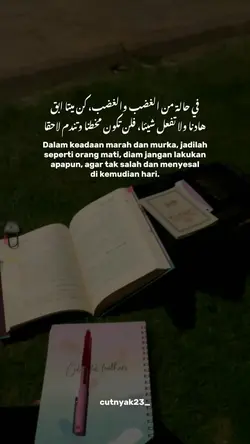 في حالة من الغضب والغضب، كن ميتا ابق
هادئا ولا تفعل شيئا، فلن تكون مخطئا وتندم لاحقا
Dalam keadaan marah dan murka, jadilah
seperti orang mati, diam jangan lakukan
apapun, agar tak salah dan menyesal
di kemudian hari.
cutnyak23_